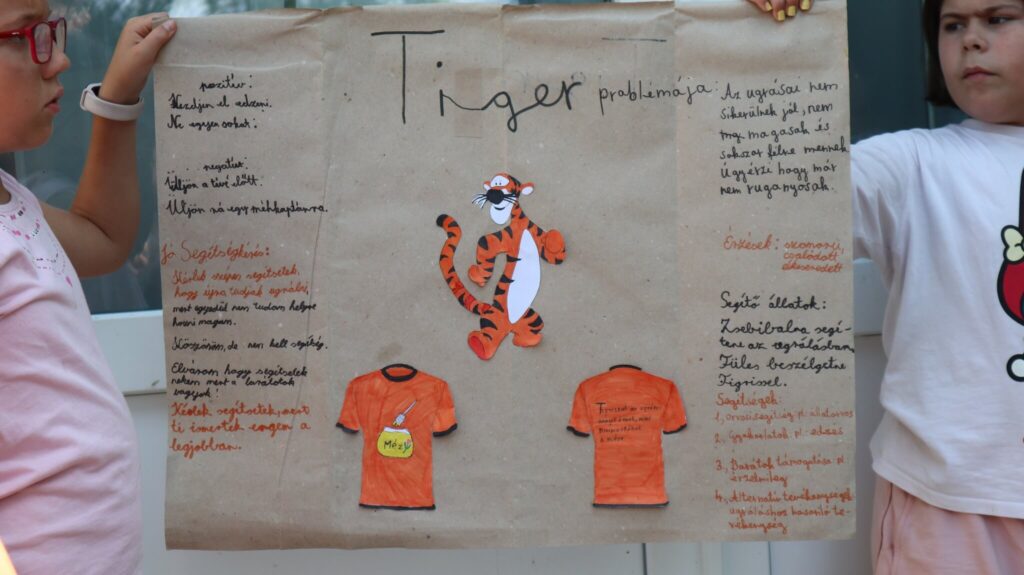 Tiger problémája
pozitív:
Kezdjen el edzeni.
Ne egyen sokat.
negatív:
Üljön a tévé előtt.
Üljön rá egy méhkaptárra.
Jó Segítségkérés:
Kérlek szépen segítsetek,
hogy újra tudjak ugrálni,
mert egyedül nem tudom helyre
hozni magam.
Köszönöm, de nem kell segítség.
Elvárom hogy segítsetek
nekem mert a barátotok
vagyok!
Kérlek segítsetek, mert
ti ismertek engem a
legjobban.
Méz
Az ugrásai nem
sikerülnek jól, nem
magasak és
sokszor félre mennek.
Úgy érzi hogy már
nem ruganyosak.
Érzések: szomorú,
csalódott
elkeseredett
Segítő állatok:
Zsebibaba segí-
tene az ugrálásban.
Füles beszélgetne
Tigrissel.
Segítségek:
1, orvosi segítség pl. állatorvos
2, Gyakorlatok pl. edzés
3, Barátok támogatása pl.
érzelmileg
4, Alternatív tevékenységek
ugráláshoz hasonló te-
vékenység